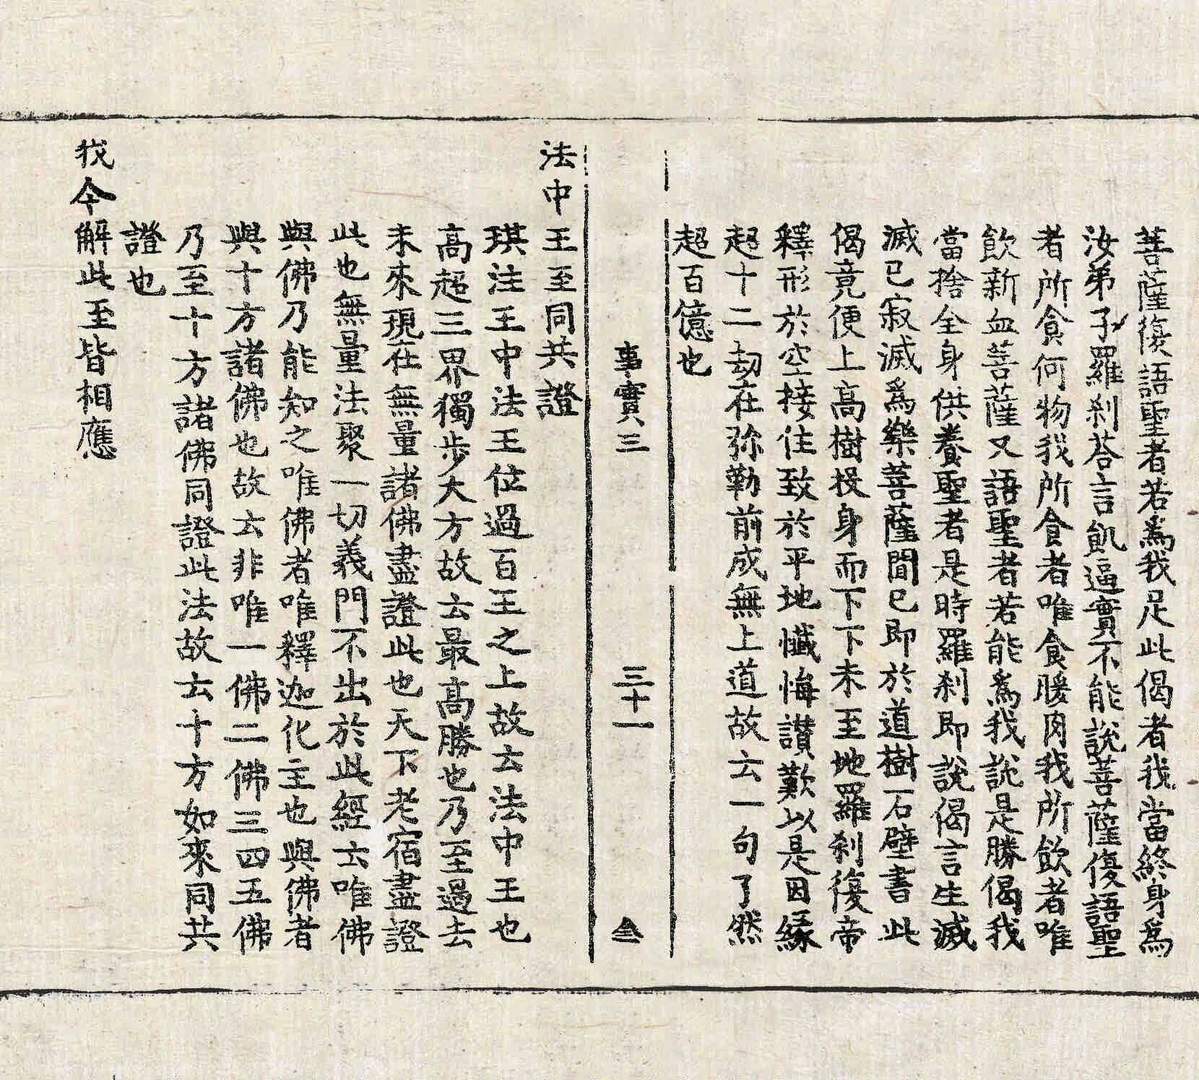 菩薩復語聖者若爲我足此偈者我當終身爲
汝弟子羅刹荅言飢逼實不能說菩薩復語聖
者所食何物我所食者唯食暖肉我所飲者唯
飲新血菩薩又語聖者若能爲我說是勝偈我
當捨全身供養聖者是時羅刹即說偈言生滅
滅已寂滅爲樂菩薩聞已即於道樹石壁書此
偈竟便上高樹投身而下下未至地羅刹復帝
釋形於空接住致於平地懺悔讃歎以是因緣
超十二劫在弥勒前成無上道故云一句了然
超百億也
事實三 三十一
法中王至同共證
琪注王中法王位過百王之上故云法中王也
高超三界獨步大方故云最高勝也乃至過去
未來現在無量諸佛盡證此也天下老宿盡證
此也無量法聚一切義門不出於此經云唯佛
與佛乃能知之唯佛者唯釋迦化主也與佛者
與十方諸佛也故云非唯一佛二佛三四五佛
乃至十方諸佛同證此法故云十方如來同共
證也
我今解此至皆相應